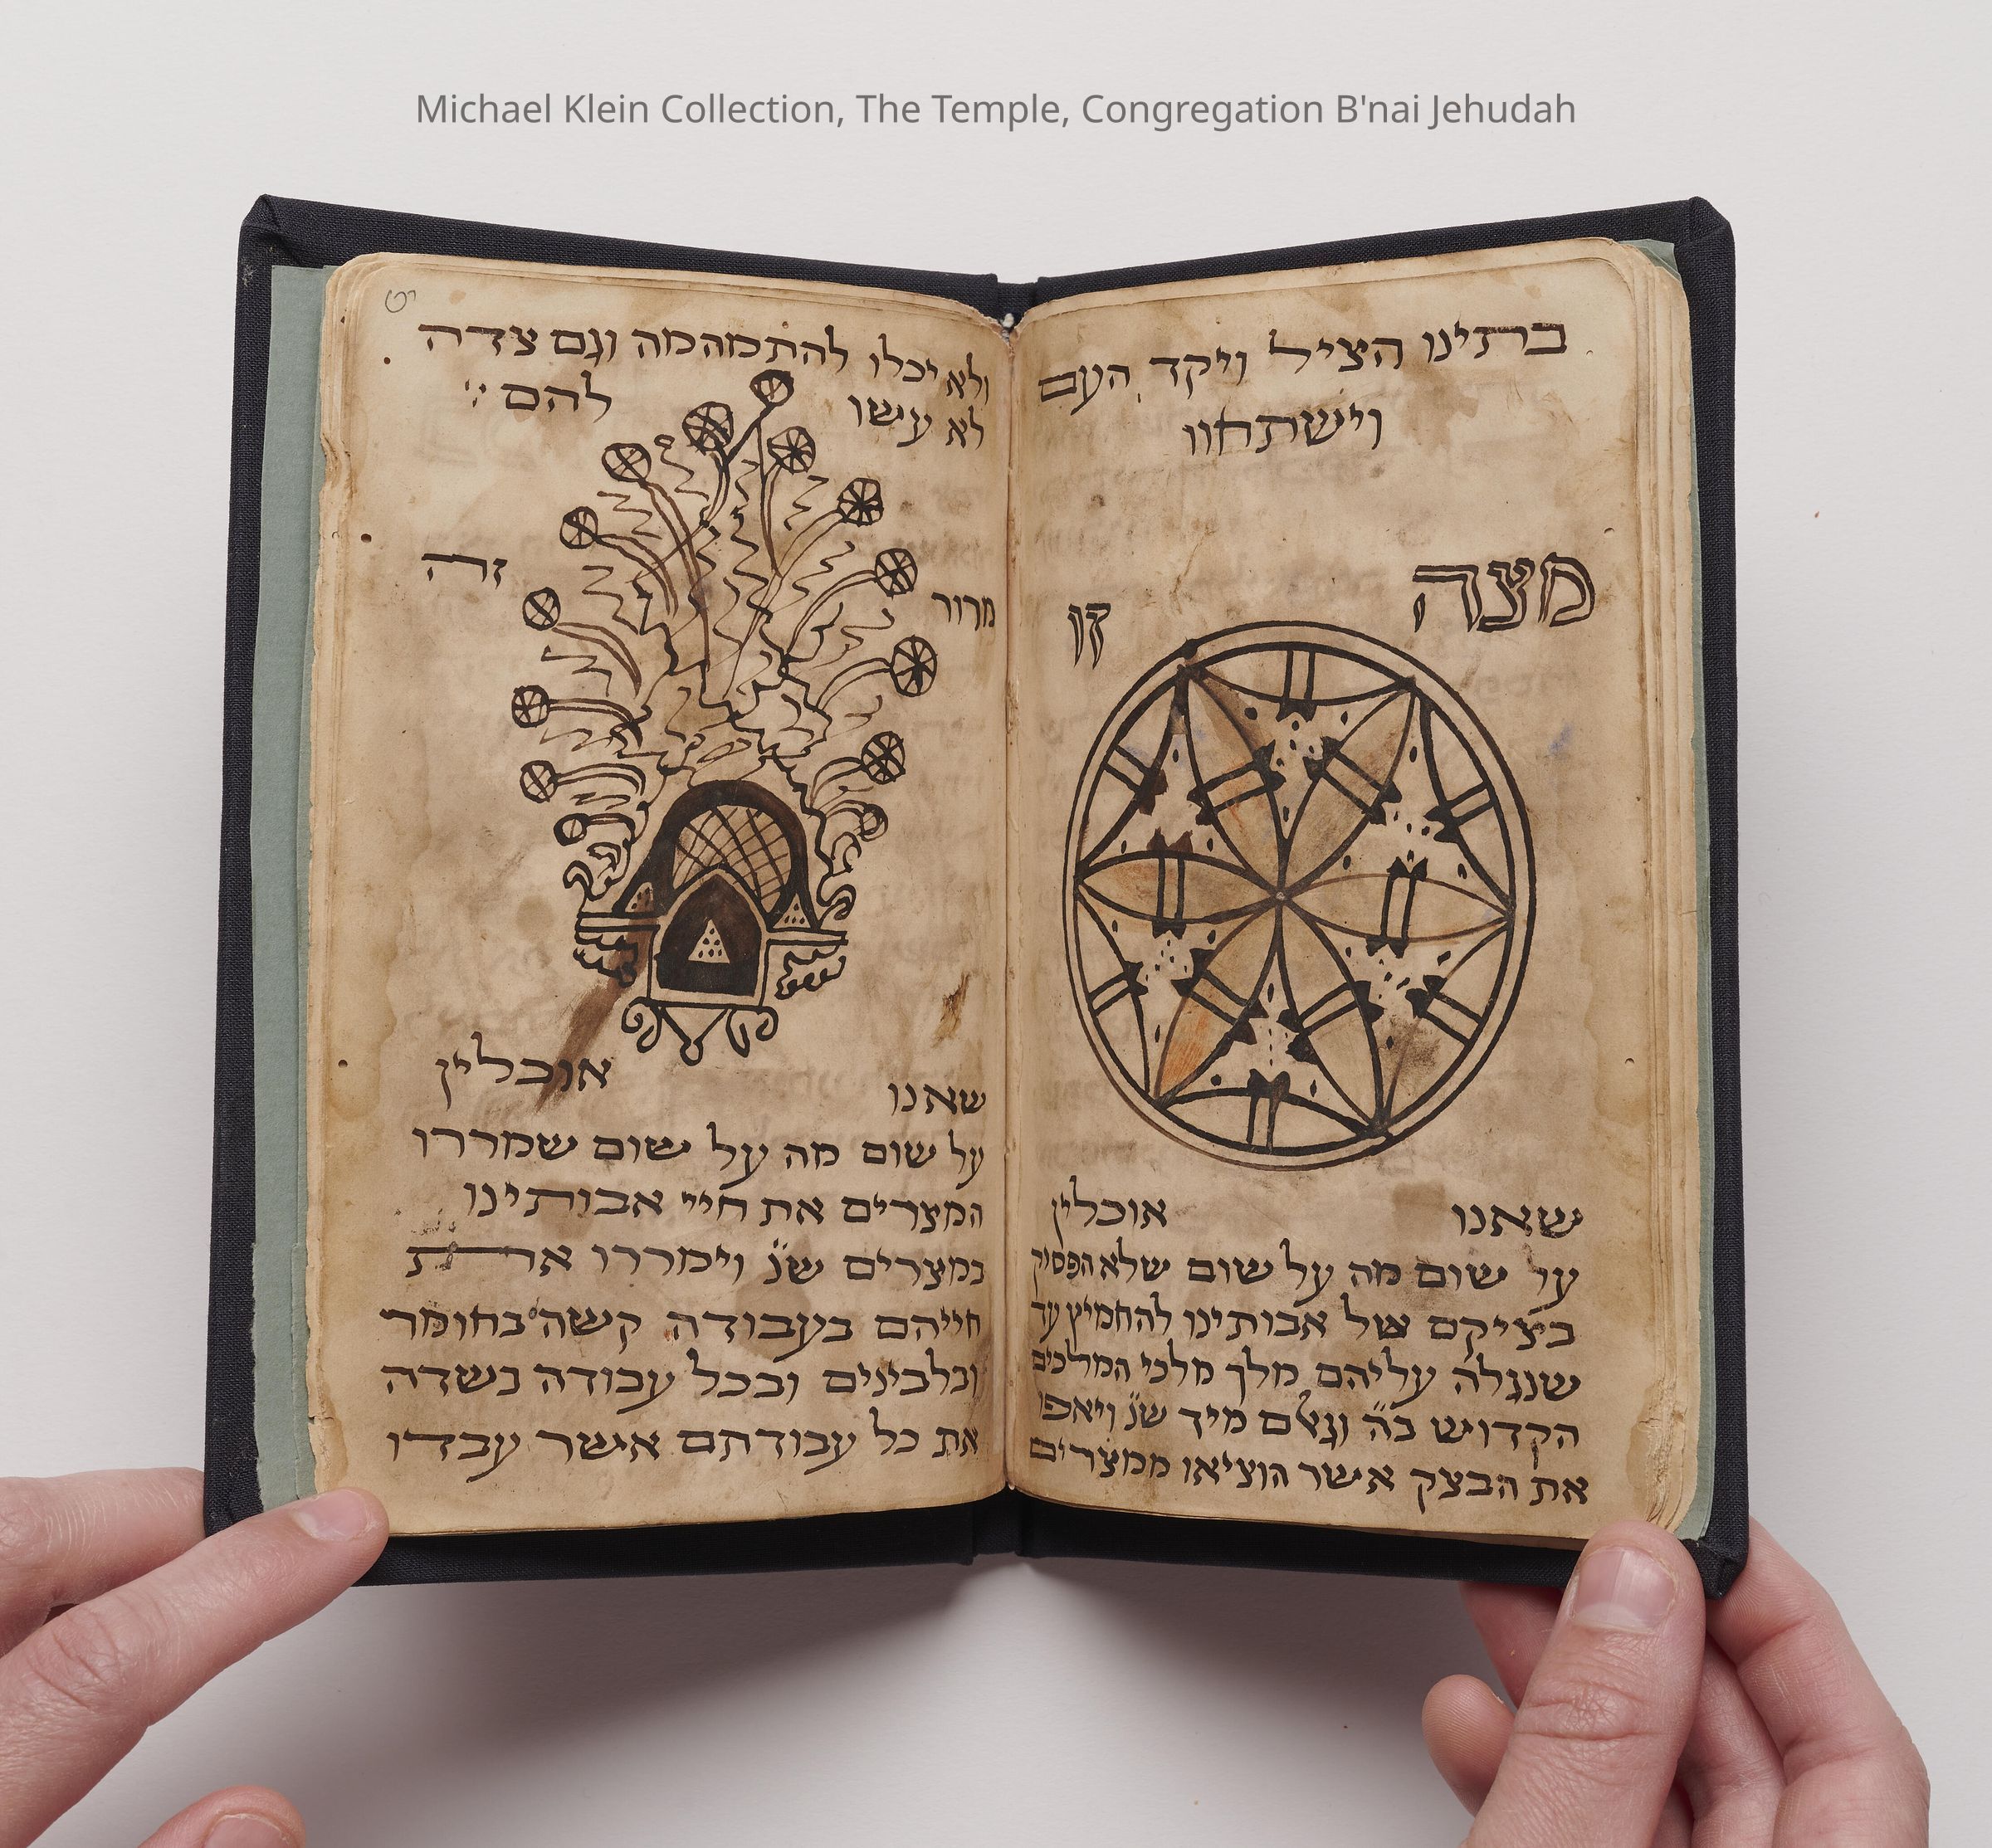 Michael Klein Collection, The Temple, Congregation B'nai Jehudah
בתינו הציל ויקד העם
וישתחוו
מצה
זו
שאנו אוכלין
על שום מה על שום שלא הפסיק
בציקם של אבותינו להחמיץ עד
שנגלה עליהם מלך מלכי המלכים
הקדוש בה וגאלם מיד שנ ויאפו
את הבצק אשר הוציאו ממצרים
ולא יכלו להתמהמה וגם צדה
לא עשו להם
מרור זה
שאנו אוכלין
על שום מה על שום שמררו
המצרים את חיי אבותינו
במצרים שנ וימררו את
חייהם בעבודה קשה בחומר
ובלבינים ובכל עבודה בשדה
את כל עבודתם אשר עבדו